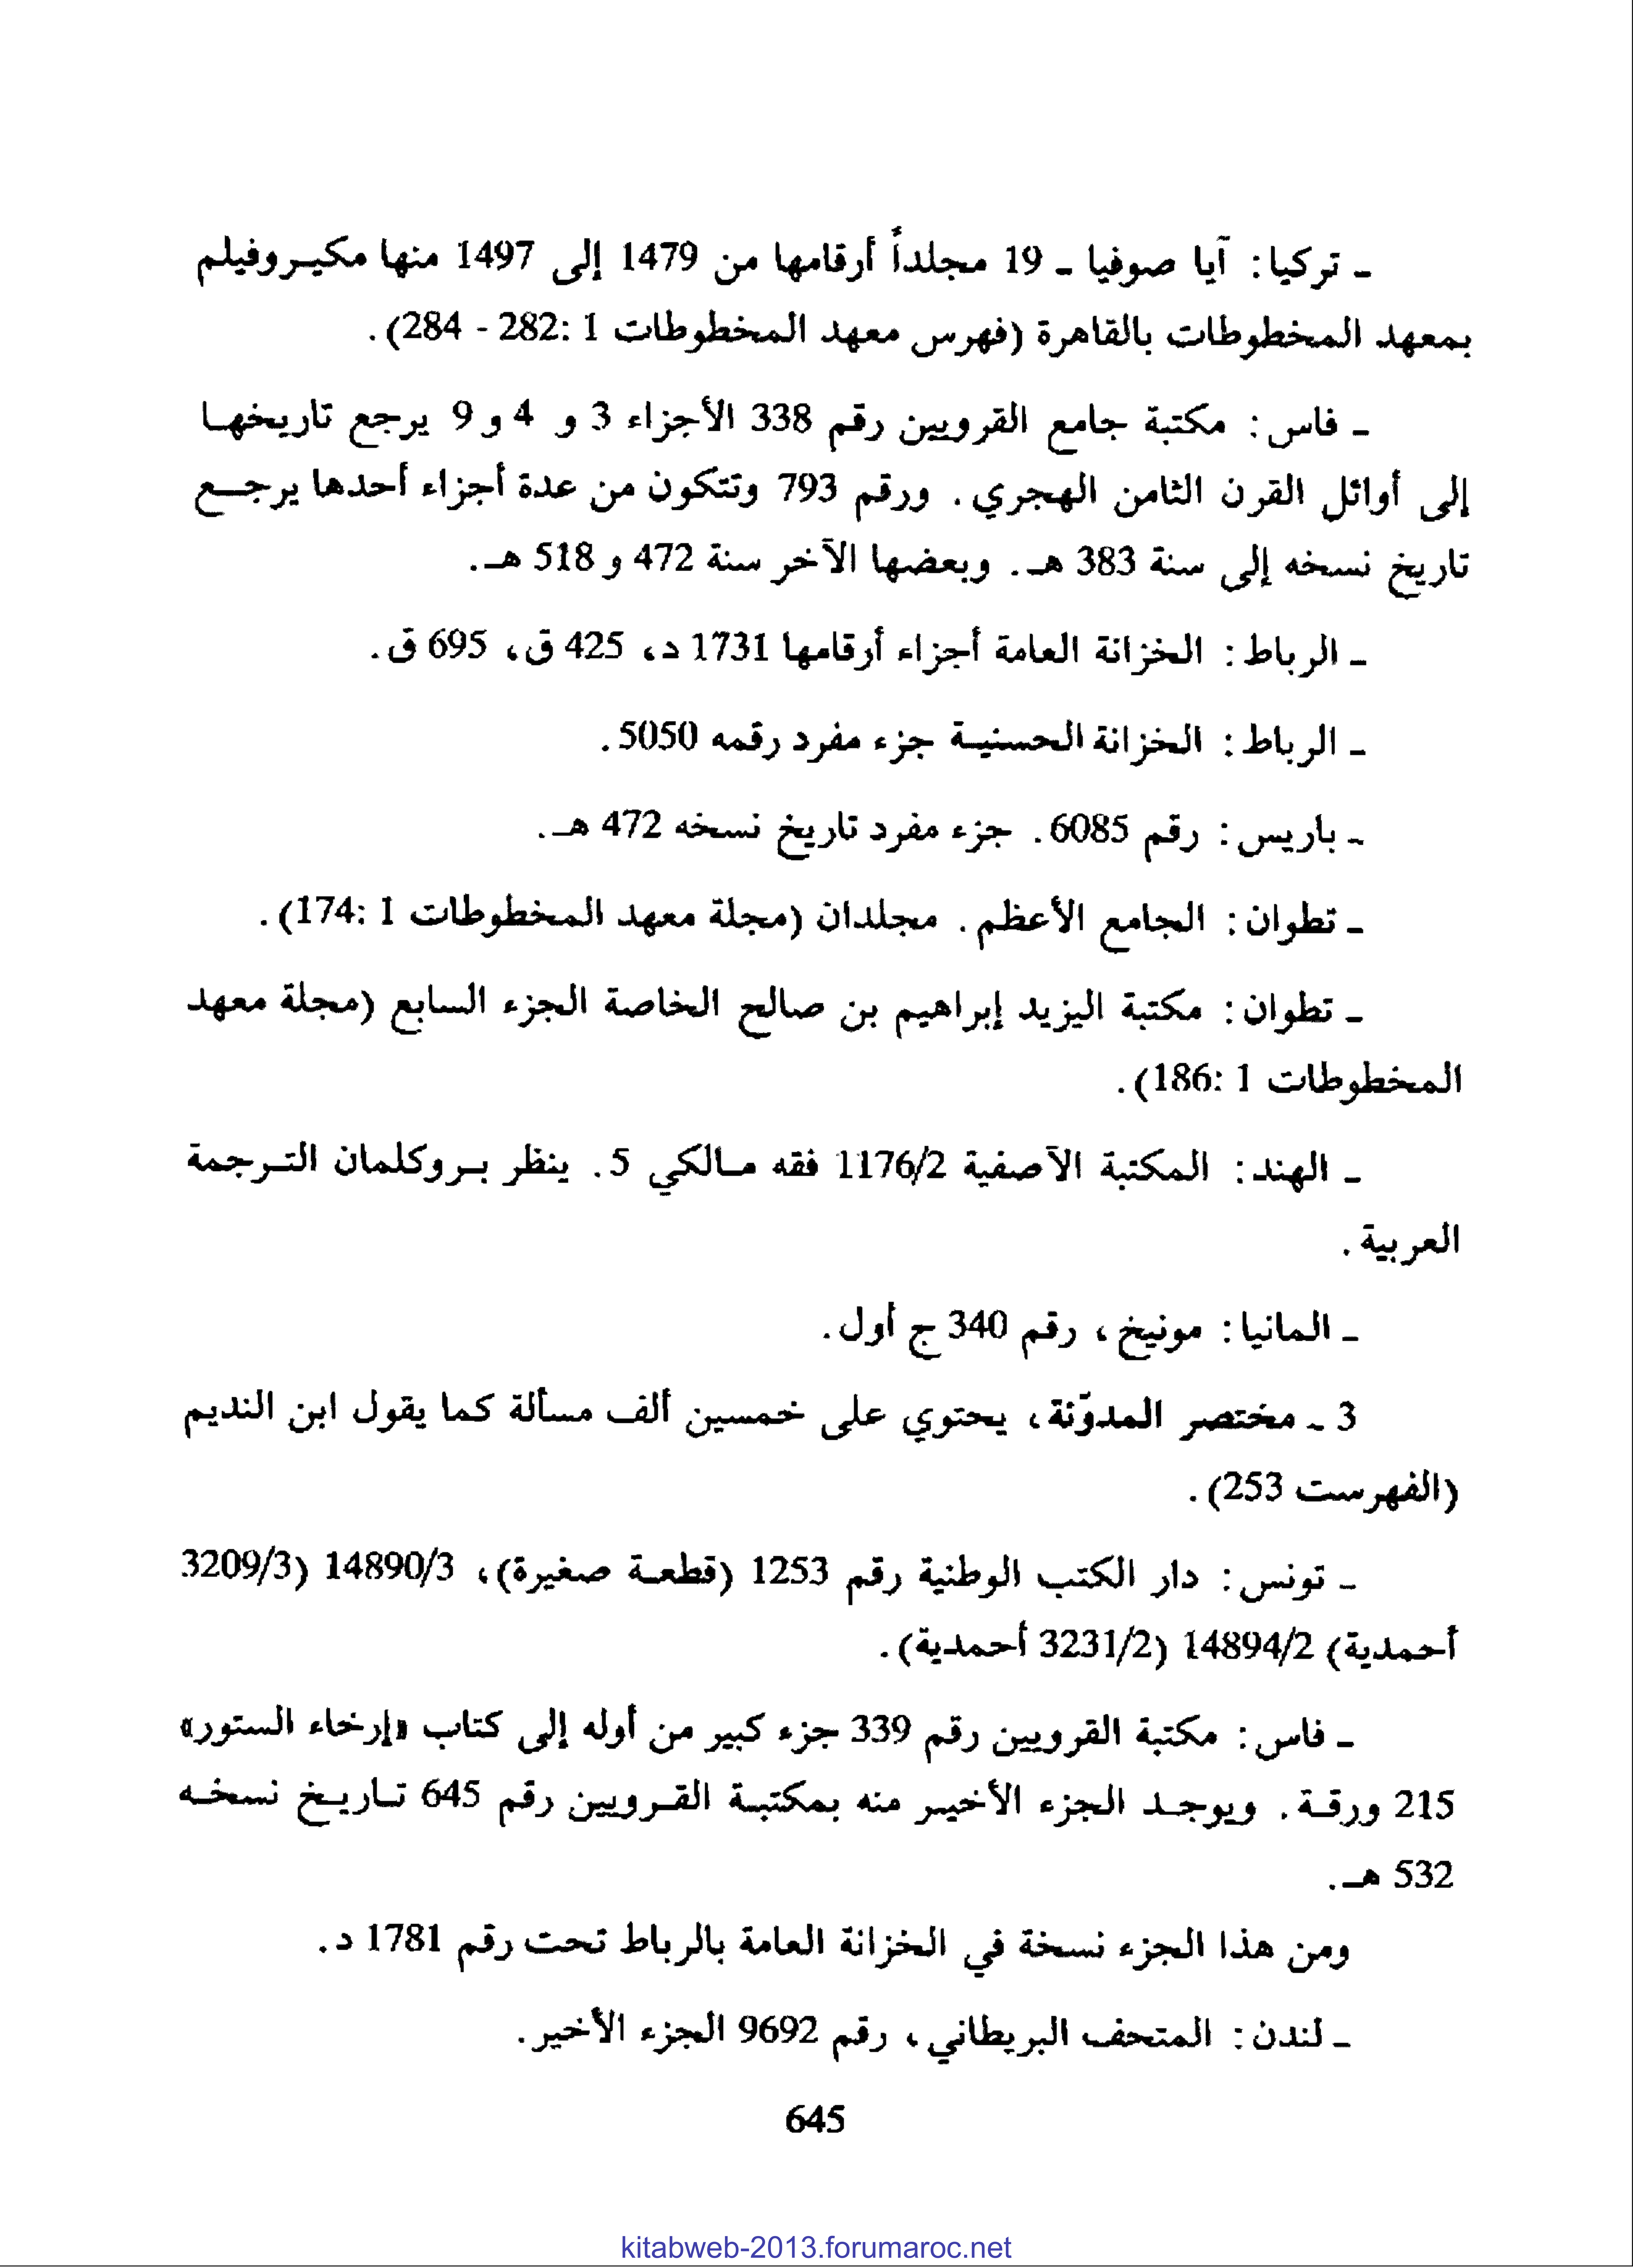 ـ تركيا: آيا صوفيا ـ 19 مجلداً أرقامها من 1479 إلى 1497 منها مكيـروفيلم
بمعهد المخطوطات بالقاهرة (فهرس معهد المخطوطات 1 :282 - 284).
ـ فاس: مكتبة جامع القرويين رقم 338 الأجزاء 3 و 4 و 9 يرجع تاريخهـا
إلى أوائل القرن الثامن الهجري. ورقم 793 وتتكون من عدة أجزاء أحدها يرجـع
تاريخ نسخه إلى سنة 383 هـ. وبعضها الآخر سنة 472 و 518 هـ.
ـ الرباط: الخزانة العامة أجزاء أرقامها 1731 د، 425 ق، 695 ق.
ـ الرباط: الخزانة الحسنيـة جزء مفرد رقمه 5050.
ـ باريس: رقم 6085. جزء مفرد تاريخ نسخه 472 هـ.
ـ تطوان: الجامع الأعظم. مجلدان (مجلة معهد المخطوطات 1 :174).
ـ تطوان: مكتبة اليزيد إبراهيم بن صالح الخاصة الجزء السابع (مجلة معهد
المخطوطات 1 :186).
ـ الهند: المكتبة الآصفية 1176/2 فقه مـالكي 5. ينظر بـروكلمان التـرجمة
العربية.
ـ المانيا: مونيخ، رقم 340 ج أول.
3 ـ مختصر المدوّنة، يحتوي على خمسين ألف مسألة كما يقول ابن النديم
(الفهرست 253).
ـ تونس: دار الكتب الوطنية رقم 1253 (قطعـة صغيرة)، 14890/3 (3209/3
أحمدية) 14894/2 (3231/2 أحمدية).
ـ فاس: مكتبة القرويين رقم 339 جزء كبير من أوله إلى كتاب «إرخاء الستور»
215 ورقـة. ويوجـد الجزء الأخيـر منه بمكتبـة القـرويين رقم 645 تـاريـخ نسخـه
532 هـ.
ومن هذا الجزء نسخة في الخزانة العامة بالرباط تحت رقم 1781 د.
ـ لندن: المتحف البريطاني، رقم 9692 الجزء الأخير.
645
kitabweb-2013.forumaroc.net